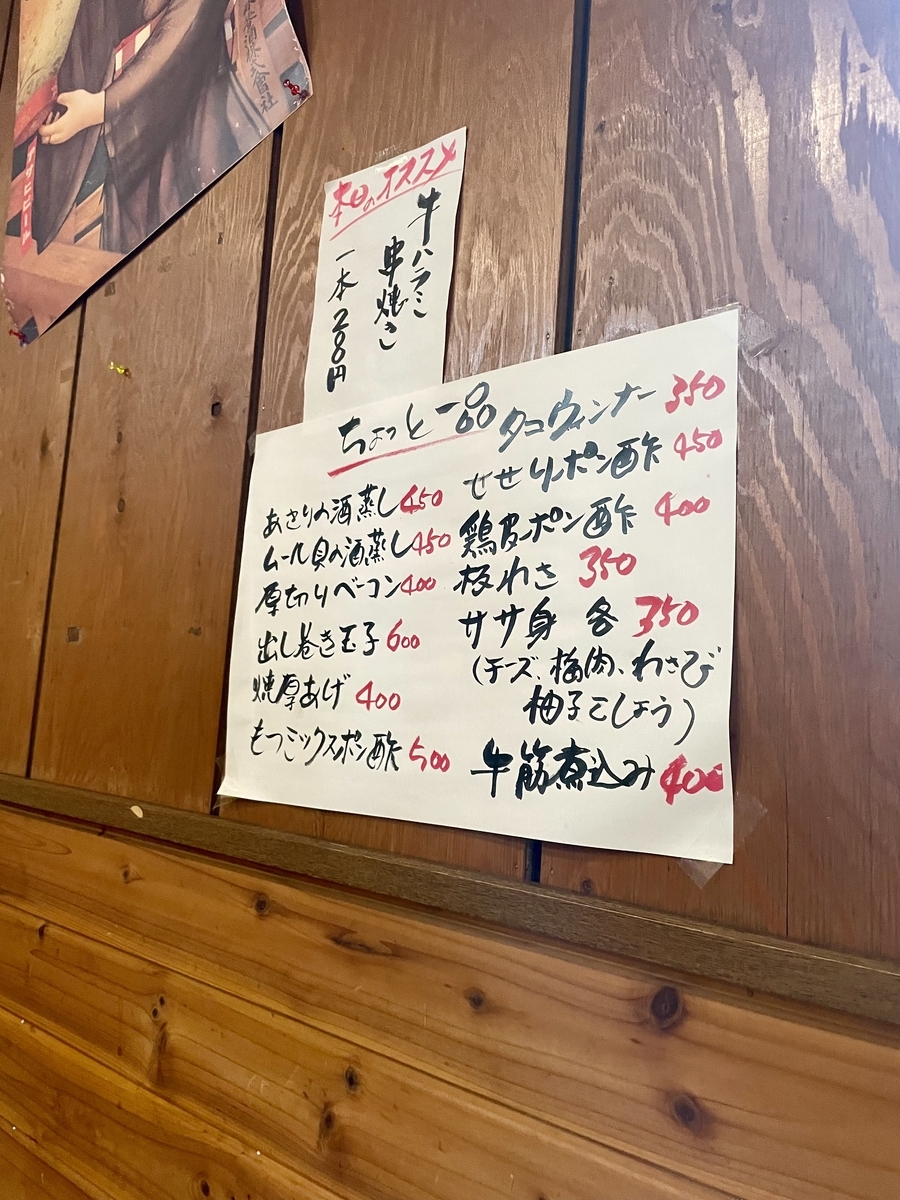 本日のオススメ
牛ハラミ
串焼き
一本 200円
ちょっと一品
あさりの酒蒸し 450
ムール貝の酒蒸し 450
厚切りベーコン 400
出し巻き玉子 600
焼厚あげ 400
もつミックスポン酢 500
タコウィンナー 350
せせりポン酢 450
鶏皮ポン酢 400
板わさ 350
ササ身 各 350
(チーズ、梅肉、わさび
柚子こしょう)
牛筋煮込み 400